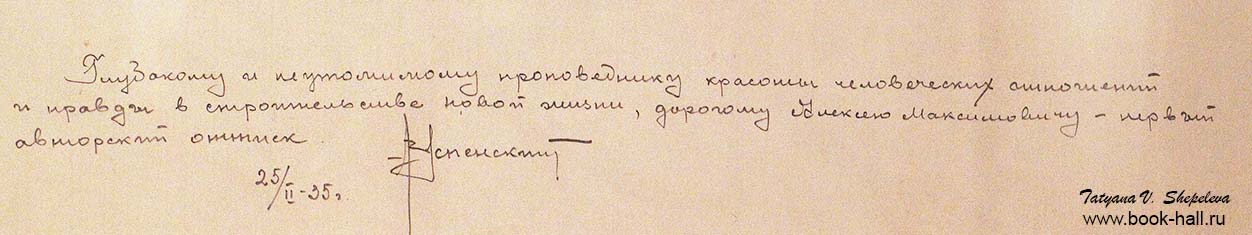 Глубокому и неутомимому проповеднику красоты человеческих отношений
и правды в строительстве новой жизни, дорогому Алексею Максимовичу – первый
авторский оттиск.
Успенский
25/II-35г.
Tatyana V. Shepeleva
www.book-hall.ru